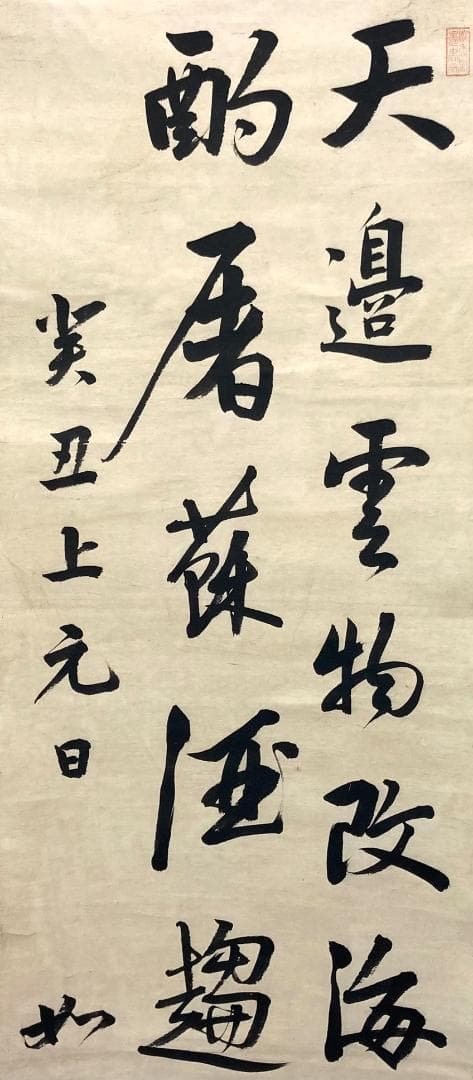 天邊雲物改海
酌屠蘇酒趨
癸丑上元日
如